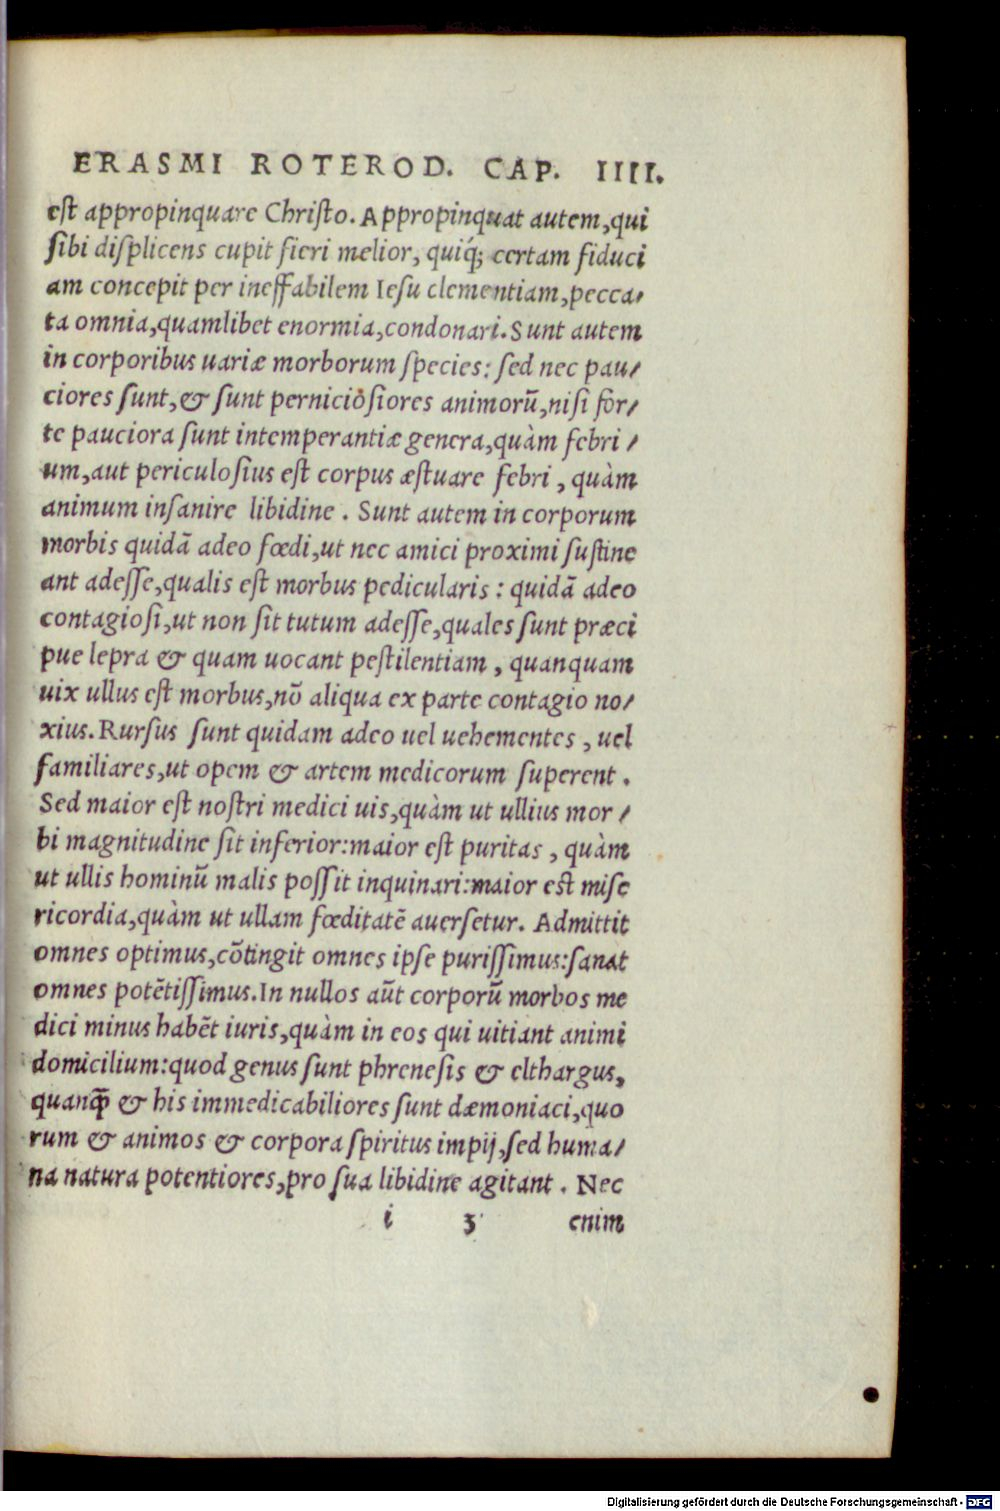 ERASMI ROTEROD. CAP. IIII.
est appropinquare Christo. Appropinquat autem, qui
sibi displicens cupit fieri melior, quiq́; certam fiduci
am concepit per ineffabilem Iesu clementiam, pecca/
ta omnia, quamlibet enormia, condonari. Sunt autem
in corporibus uariæ morborum species: sed nec pau/
ciores sunt, & sunt perniciosiores animorũ, nisi for/
te pauciora sunt intemperantiæ genera, quàm febri/
um, aut periculosius est corpus æstuare febri, quàm
animum insanire libidine. Sunt autem in corporum
morbis quidã adeo fœdi, ut nec amici proximi sustine
ant adesse, qualis est morbus pedicularis: quidã adeo
contagiosi, ut non sit tutum adesse, quales sunt præci
pue lepra & quam uocant pestilentiam, quanquam
uix ullus est morbus, nõ aliqua ex parte contagio no/
xius. Rursus sunt quidam adeo uel uehementes, uel
familiares, ut opem & artem medicorum superent.
Sed maior est nostri medici uis, quàm ut ullius mor/
bi magnitudine sit inferior: maior est puritas, quàm
ut ullis hominũ malis possit inquinari: maior est mise
ricordia, quàm ut ullam fœditatẽ auersetur. Admittit
omnes optimus, cõtingit omnes ipse purissimus: sanat
omnes potẽtissimus. In nullos aũt corporũ morbos me
dici minus habẽt iuris, quàm in eos qui uitiant animi
domicilium: quod genus sunt phrenesis & elthargus,
quanꝗ̃ & his immedicabiliores sunt dæmoniaci, quo
rum & animos & corpora spiritus impij, sed huma/
na natura potentiores, pro sua libidine agitant. Nec
i 3 enim
Digitalisierung gefördert durch die Deutsche Forschungsgemeinschaft - DFG